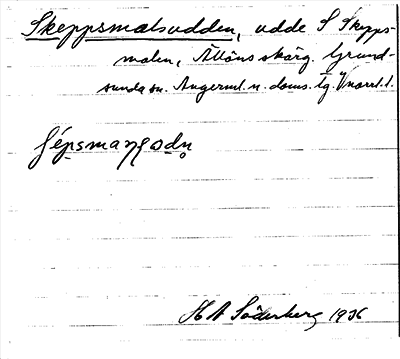 Skeppsmalsudden, udde S Skepps-
malen, Ålöns skärg. Grund-
sunda sn. Ångerml. n. doms. tg. Vnorrl. l.
H A Söderberg 1936